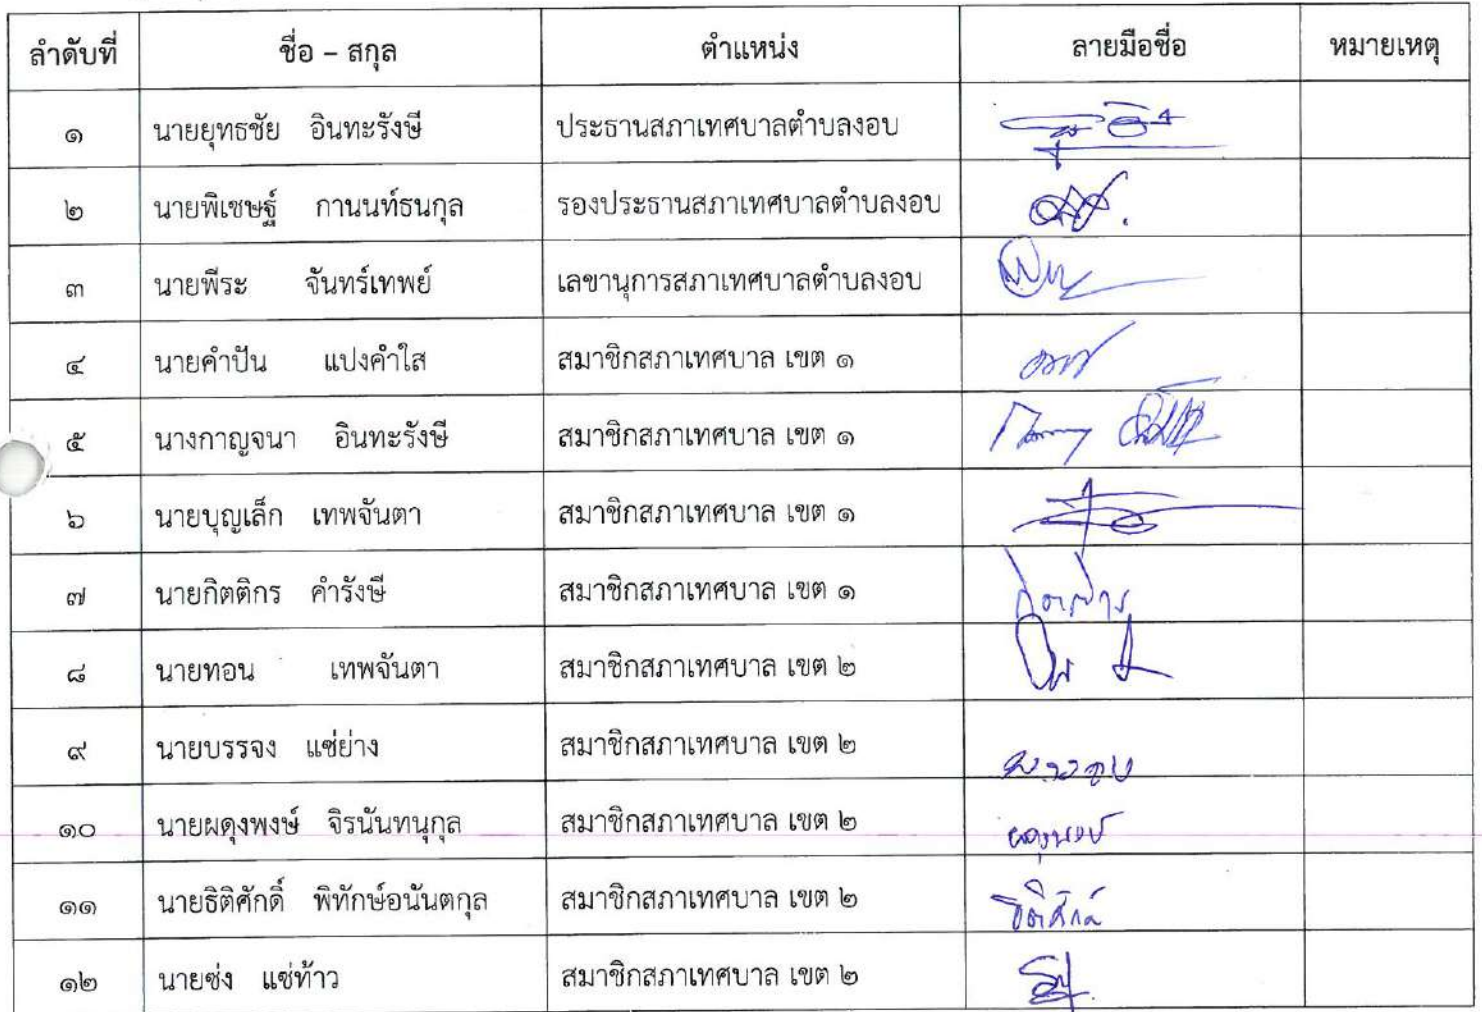 ลำดับที่ ชื่อ – สกุล ตำแหน่ง ลายมือชื่อ หมายเหตุ
๑ นายยุทธชัย อินทะรังษี ประธานสภาเทศบาลตำบลงอบ
๒ นายพิเชษฐ์ กานนท์ธนกุล รองประธานสภาเทศบาลตำบลงอบ
๓ นายพีระ จันทร์เทพย์ เลขานุการสภาเทศบาลตำบลงอบ
๔ นายคำปัน แปงคำใส สมาชิกสภาเทศบาล เขต ๑
๕ นางกาญจนา อินทะรังษี สมาชิกสภาเทศบาล เขต ๑
๖ นายบุญเล็ก เทพจันตา สมาชิกสภาเทศบาล เขต ๑
๗ นายกิตติกร คำรังษี สมาชิกสภาเทศบาล เขต ๑
๘ นายทอน เทพจันตา สมาชิกสภาเทศบาล เขต ๒
๙ นายบรรจง แซ่ย่าง สมาชิกสภาเทศบาล เขต ๒
๑๐ นายผดุงพงษ์ จิรนันทนุกุล สมาชิกสภาเทศบาล เขต ๒ ผดุงพงษ์
๑๑ นายธิติศักดิ์ พิทักษ์อนันตกุล สมาชิกสภาเทศบาล เขต ๒
๑๒ นายซ่ง แซ่ท้าว สมาชิกสภาเทศบาล เขต ๒